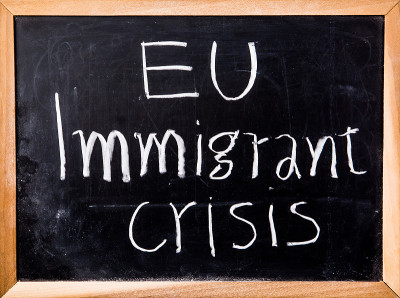 EU
Immigrant
crisis